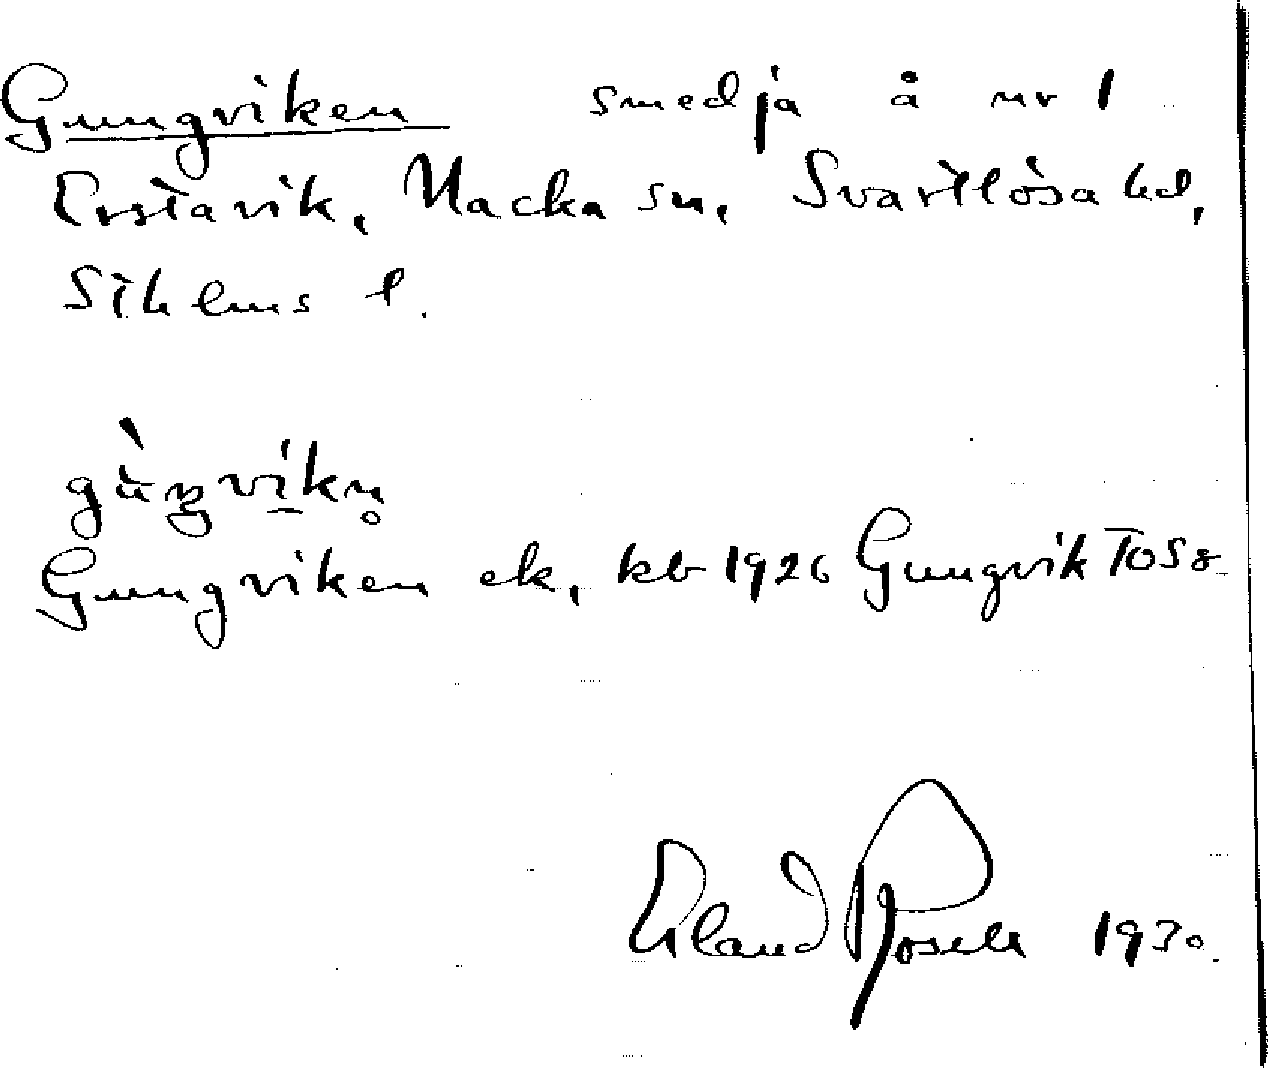 Gungviken smedja å nr 1
Erstavik, Nacka sn, Svartlösa hd,
Sthlms l.
gùŋvikn̥
Gungviken ek, kb 1926 Gungvik TOS8
Erland Rosell 1930.